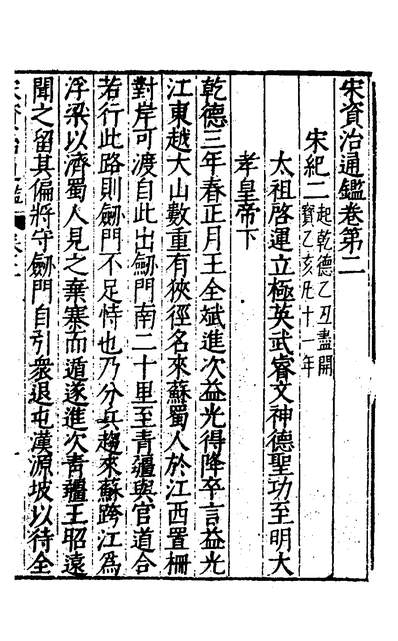 宋資治通鑑卷第二
宋紀二
起乾德乙丑盡開
寶乙亥凡十一年
太祖啓運立極英武睿文神德聖功至明大
孝皇帝下
乾德三年春正月王全斌進次益光得降卒言益光
江東越大山數重有狹徑名來蘇蜀人於江西置柵
對岸可渡自此出劒門南二十里至青疆與官道合
若行此路則劒門不足恃也乃分兵趨來蘇跨江爲
浮梁以濟蜀人見之棄寨而遁遂進次青疆王昭遠
聞之留其偏將守劒門自引衆退屯漢源坡以待全